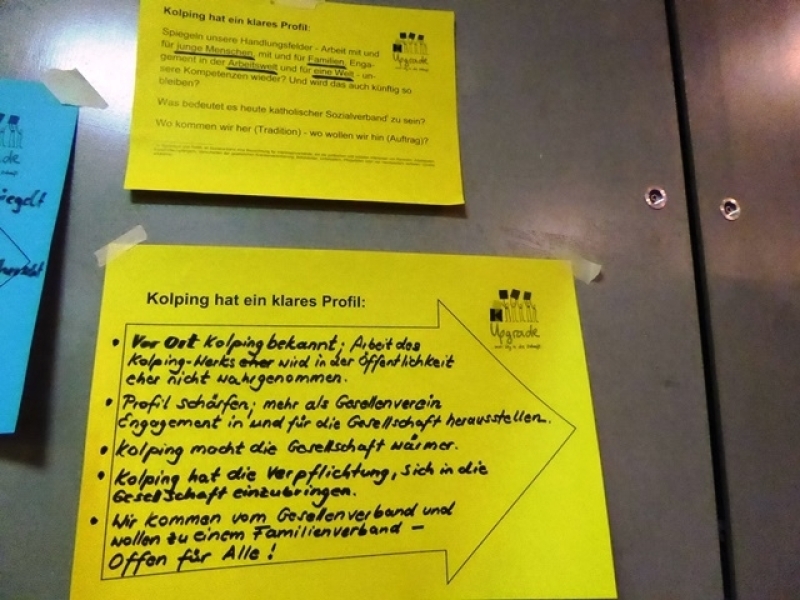 Kolping hat ein klares Profil:
Spiegeln unsere Handlungsfelder - Arbeit mit und
für junge Menschen, mit und für Familien, Enga-
gement in der Arbeitswelt und für eine Welt - un-
sere Kompetenzen wieder? Und wird das auch künftig so
bleiben?
Was bedeutet es heute katholischer Sozialverband¹ zu sein?
Wo kommen wir her (Tradition) - wo wollen wir hin (Auftrag)?
Upgrade
Kolping hat ein klares Profil:
Upgrade
• Vor Ort Kolping bekannt; Arbeit des
Kolping-Werks eher wird in der Öffentlichkeit
eher nicht wahrgenommen.
• Profil schärfen; mehr als Gesellenverein
Engagement in und für die Gesellschaft herausstellen.
• Kolping macht die Gesellschaft wärmer.
• Kolping hat die Verpflichtung, sich in die
Gesellschaft einzubringen.
• Wir kommen vom Gesellenverband und
wollen zu einem Familienverband –
Offen für Alle!